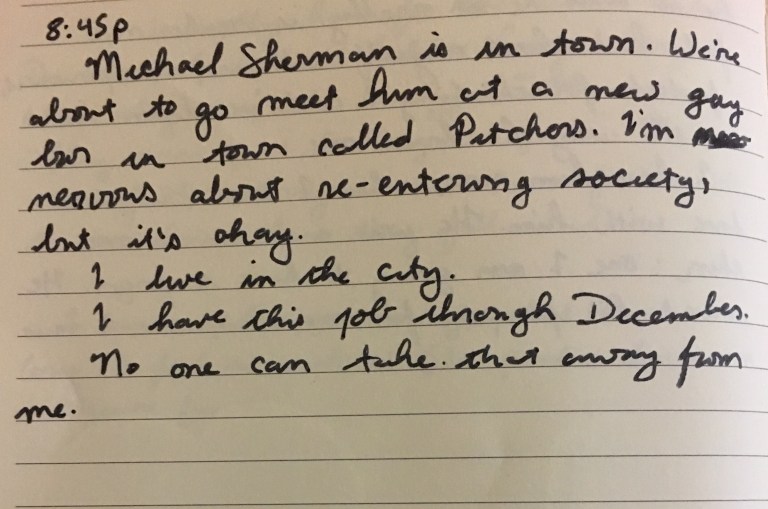 8:45p
Michael Sherman is in town. We're
about to go meet him at a new gay
bar in town called Pitchers. I'm
nervous about re-entering society,
but it's okay.
I live in the city.
I have this job through December.
No one can take that away from
me.